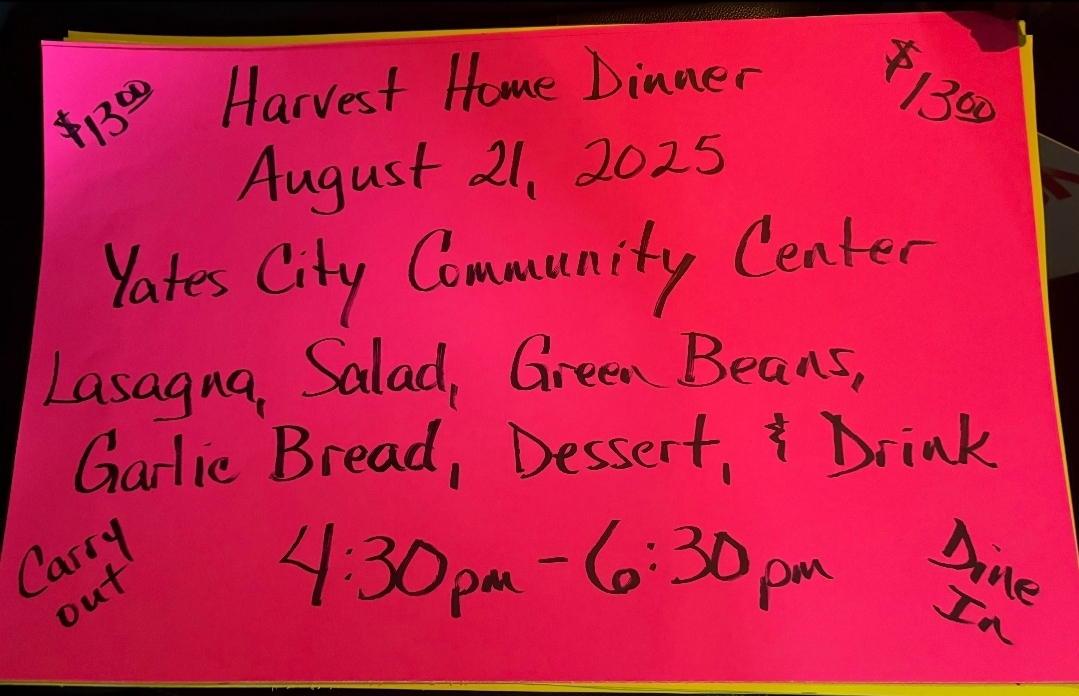 $13.00
Harvest Home Dinner
$13.00
August 21, 2025
Yates City Community Center
Lasagna, Salad, Green Beans,
Garlic Bread, Dessert, & Drink
Carry out
4:30pm - 6:30pm
Dine In